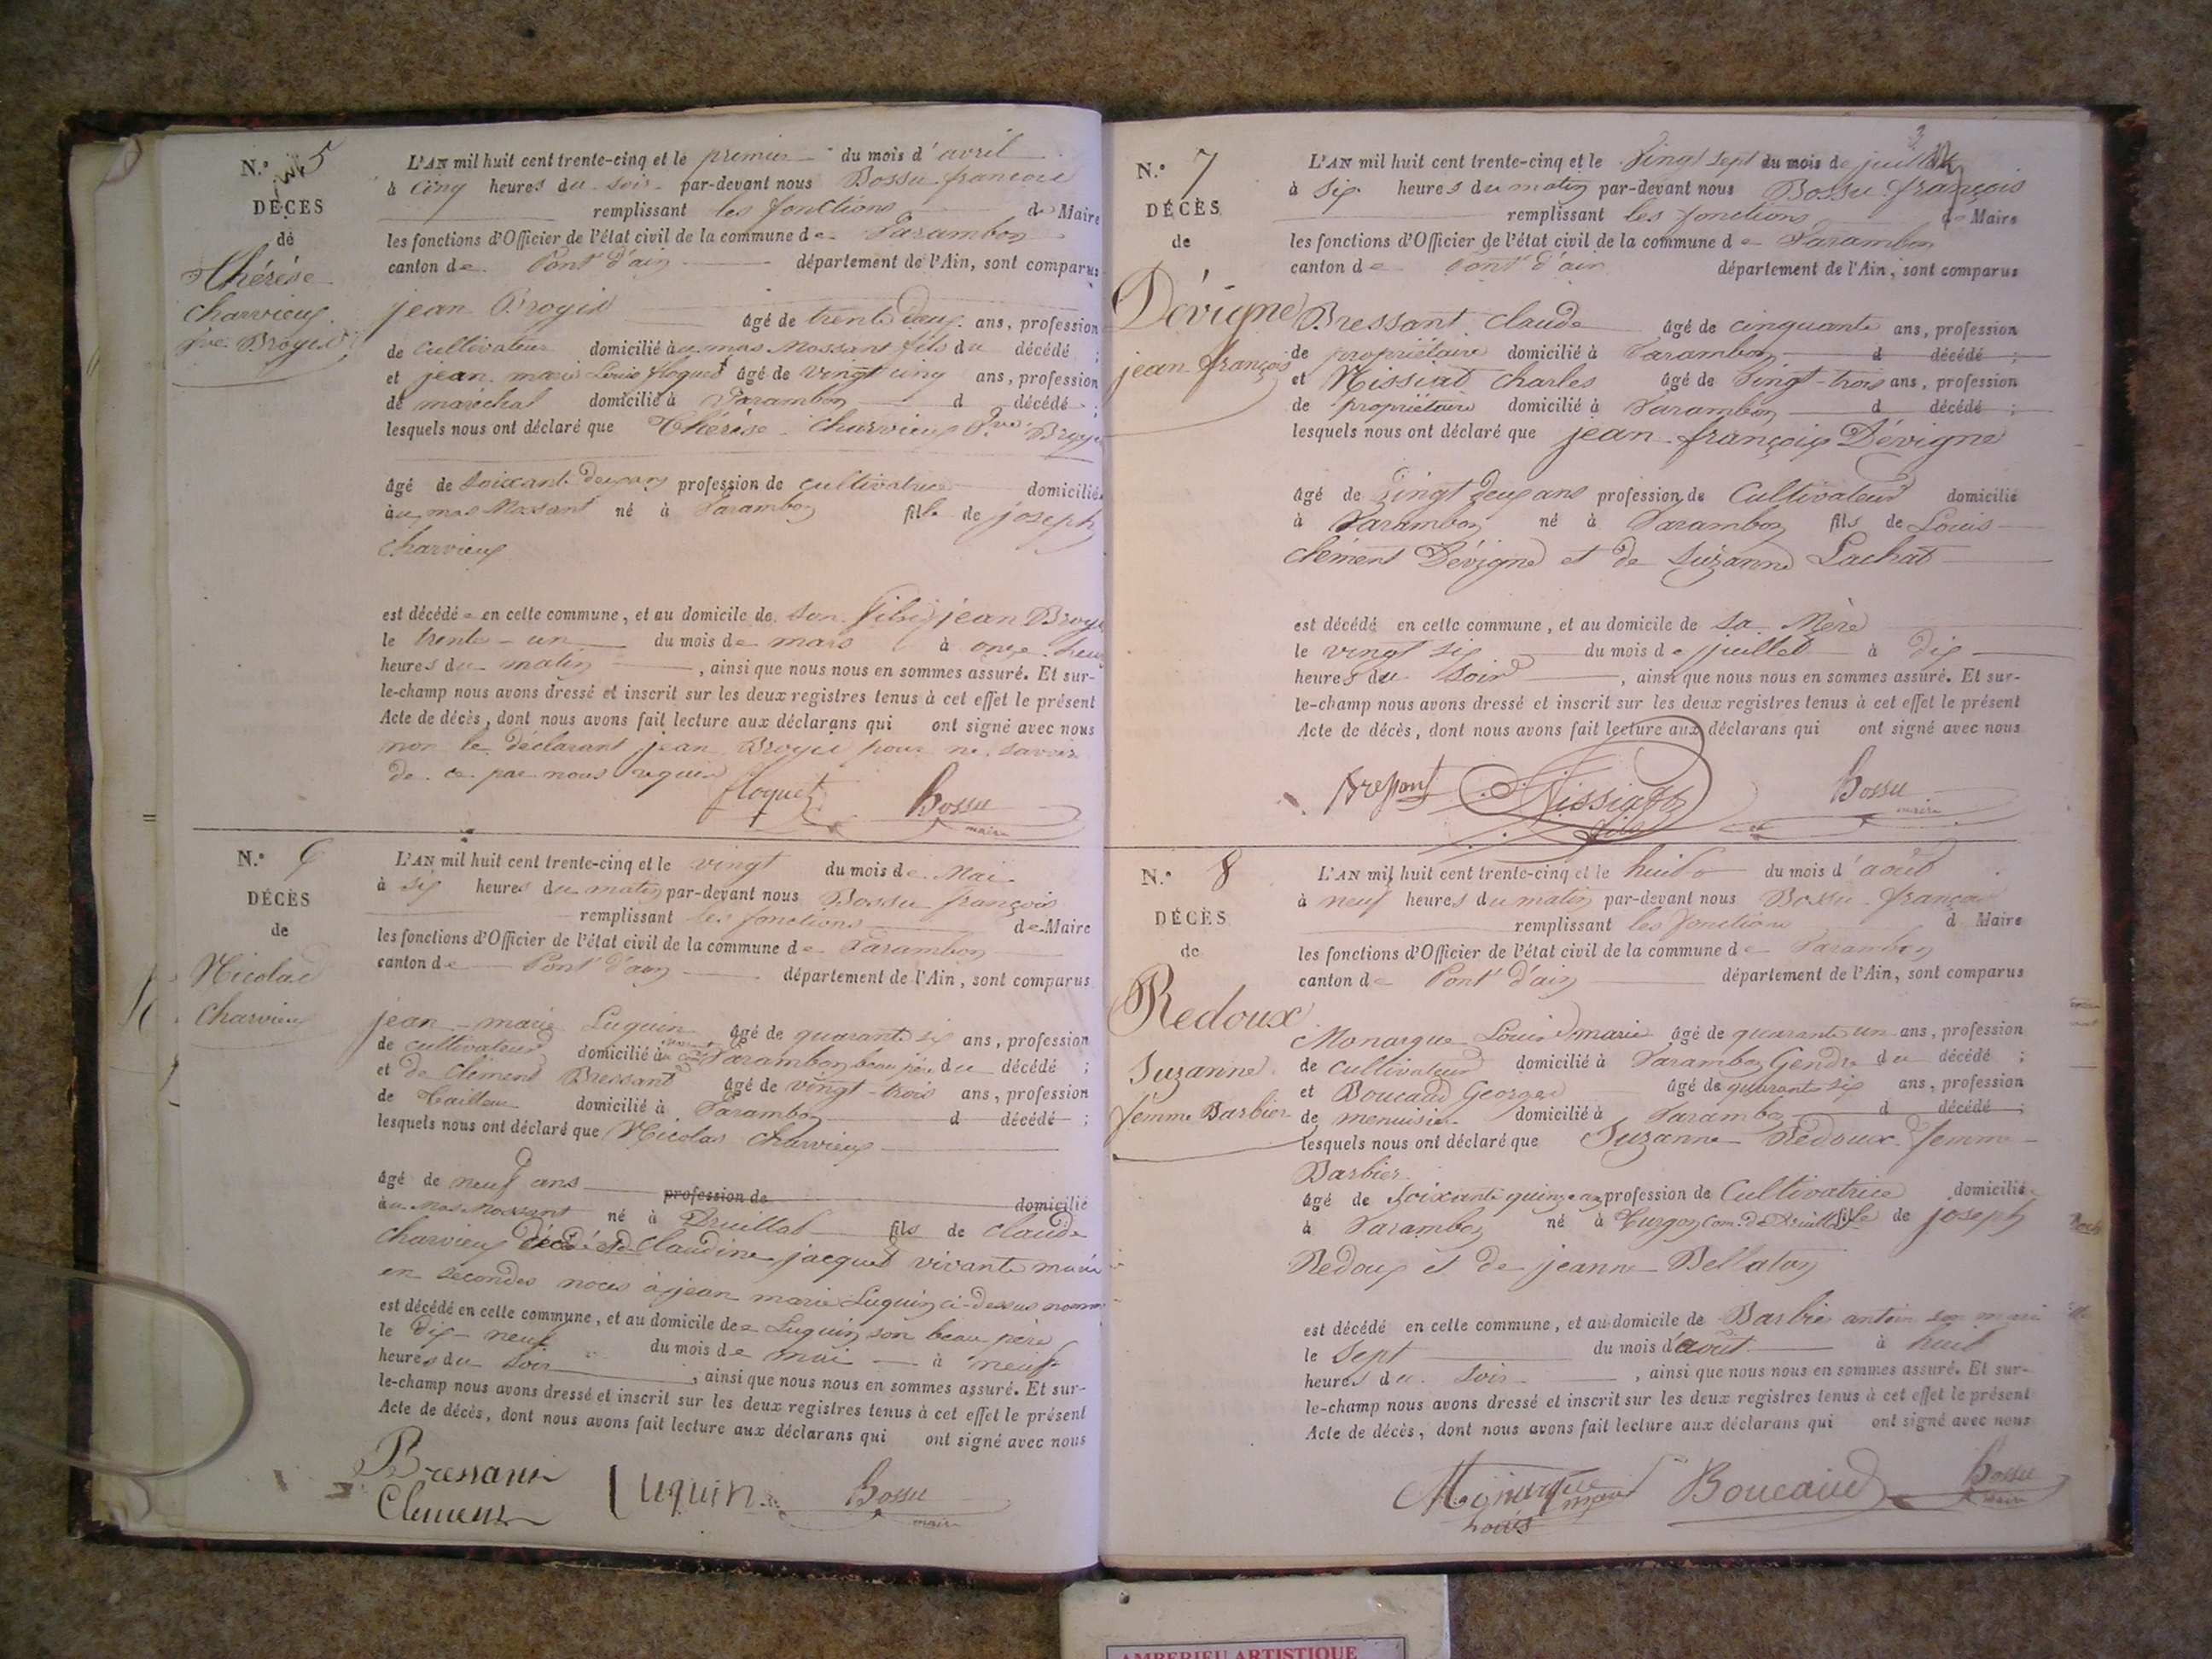 N.° 5
DÉCÈS
de
Thérèse
Charvieux
Vve Broyer
L'AN mil huit cent trente-cinq et le premier du mois d'avril
à cinq heures du soir par-devant nous Bossu françois
remplissant les fonctions de Maire
les fonctions d'Officier de l'état civil de la commune de Varambon
canton de Pont d'ain département de l'Ain, sont comparus
jean Broyer
âgé de trente deux ans, profession
de cultivateur domicilié au mas Mossant fils du décédé ;
et jean marie Louis floquet âgé de vingt cinq ans, profession
de marechal domicilié à Varambon d décédé ;
lesquels nous ont déclaré que Thérèse Charvieux Vve Broyer
âgé de soixante deux ans profession de cultivatrice domicilié
au mas Mossant né à Varambon fille de joseph
Charvieux
est décédée en cette commune, et au domicile de son fils jean Broyer
le trente-un du mois de mars à onze heures
heures du matin, ainsi que nous nous en sommes assuré. Et sur-
le-champ nous avons dressé et inscrit sur les deux registres tenus à cet effet le présent
Acte de décès, dont nous avons fait lecture aux déclarans qui ont signé avec nous
non le déclarant jean Broyer pour ne savoir
de ce par nous requis
floquet Bossu
maire
N.° 6
DÉCÈS
de
Nicolas
Charvieux
L'AN mil huit cent trente-cinq et le vingt du mois de Mai
à six heures du matin par-devant nous Bossu françois
remplissant les fonctions de Maire
les fonctions d'Officier de l'état civil de la commune de Varambon
canton de Pont d'ain département de l'Ain, sont comparus
jean-marie Luquin âgé de quarante six ans, profession
de cultivateur domicilié à Varambon beau père du décédé ;
et de Clément Bressant âgé de vingt-trois ans, profession
de tailleur domicilié à Varambon d décédé ;
lesquels nous ont déclaré que Nicolas Charvieux
âgé de neuf ans profession de domicilié
au Mas Mossant né à Druillat fils de Claude
Charvieux décédé et de Claudine jacquet vivante mariée
en secondes noces à jean marie Luquin ci-dessus nommé
est décédé en cette commune, et au domicile de Luquin son beau père
le dix-neuf du mois de mai à neuf
heures du soir, ainsi que nous nous en sommes assuré. Et sur-
le-champ nous avons dressé et inscrit sur les deux registres tenus à cet effet le présent
Acte de décès, dont nous avons fait lecture aux déclarans qui ont signé avec nous
Bressant
Clement Luquin Bossu
maire
N.° 7
DÉCÈS
de
Dévigne
jean françois
L'AN mil huit cent trente-cinq et le vingt sept du mois de juillet
à six heures du matin par-devant nous Bossu françois
remplissant les fonctions de Maire
les fonctions d'Officier de l'état civil de la commune de Varambon
canton de Pont d'ain département de l'Ain, sont comparus
Bressant Claude âgé de cinquante ans, profession
de propriétaire domicilié à Varambon d décédé ;
et Nissiat Charles âgé de vingt-trois ans, profession
de propriétaire domicilié à Varambon d décédé ;
lesquels nous ont déclaré que jean françois Dévigne
âgé de vingt deux ans profession de Cultivateur domicilié
à Varambon né à Varambon fils de Louis
Clément Dévigne et de Suzanne Lachat
est décédé en cette commune, et au domicile de sa Mère
le vingt six du mois de juillet à dix
heures du soir, ainsi que nous nous en sommes assuré. Et sur-
le-champ nous avons dressé et inscrit sur les deux registres tenus à cet effet le présent
Acte de décès, dont nous avons fait lecture aux déclarans qui ont signé avec nous
Bressant Nissiat Bossu
fils maire
N.° 8
DÉCÈS
de
Redoux
Suzanne
femme Barbier
L'AN mil huit cent trente-cinq et le huit du mois d'août
à neuf heures du matin par-devant nous Bossu françois
remplissant les fonctions d Maire
les fonctions d'Officier de l'état civil de la commune de Varambon
canton de Pont d'ain département de l'Ain, sont comparus
Monarque Louis marie âgé de quarante un ans, profession
de cultivateur domicilié à Varambon Gendre du décédé ;
et Boucaud Georges âgé de quarante six ans, profession
de menuisier domicilié à Varambon d décédé ;
lesquels nous ont déclaré que Suzanne Redoux femme
Barbier
âgé de soixante quinze ans profession de Cultivatrice domicilié
à Varambon né à Turgon Com. de Druillat fille de joseph
Redoux et de jeanne Bellaton
est décédé en cette commune, et au domicile de Barbier antoine son mari
le sept du mois d'août à huit
heures du soir, ainsi que nous nous en sommes assuré. Et sur-
le-champ nous avons dressé et inscrit sur les deux registres tenus à cet effet le présent
Acte de décès, dont nous avons fait lecture aux déclarans qui ont signé avec nous
Monarque Boucaud Bossu
Louis maire
AMBERIEU ARTISTIQUE